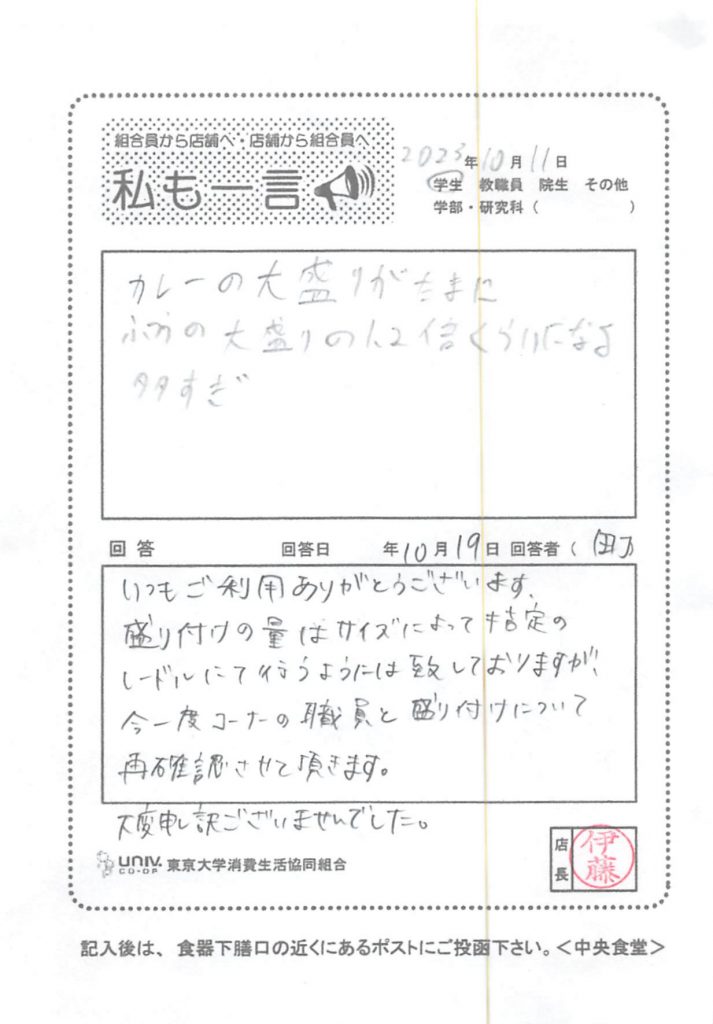 組合員から店舗へ・店舗から組合員へ
私も一言
2023年10月11日
学生 教職員 院生 その他
学部・研究科( )
カレーの大盛りがたまに
大盛りの1.2倍くらいになる
多すぎ
回答 回答日 年10月19日 回答者( )
いつもご利用ありがとうございます、
盛り付けの量はサイズによって指定の
レードルにて行うようには致しておりますが、
今一度コーナーの職員と盛り付けについて
再確認させて頂きます。
大変申し訳ございませんでした。
UNIV. CO-OP 東京大学消費生活協同組合
店長 伊藤
記入後は、食器下膳口の近くにあるポストにご投函下さい。<中央食堂>